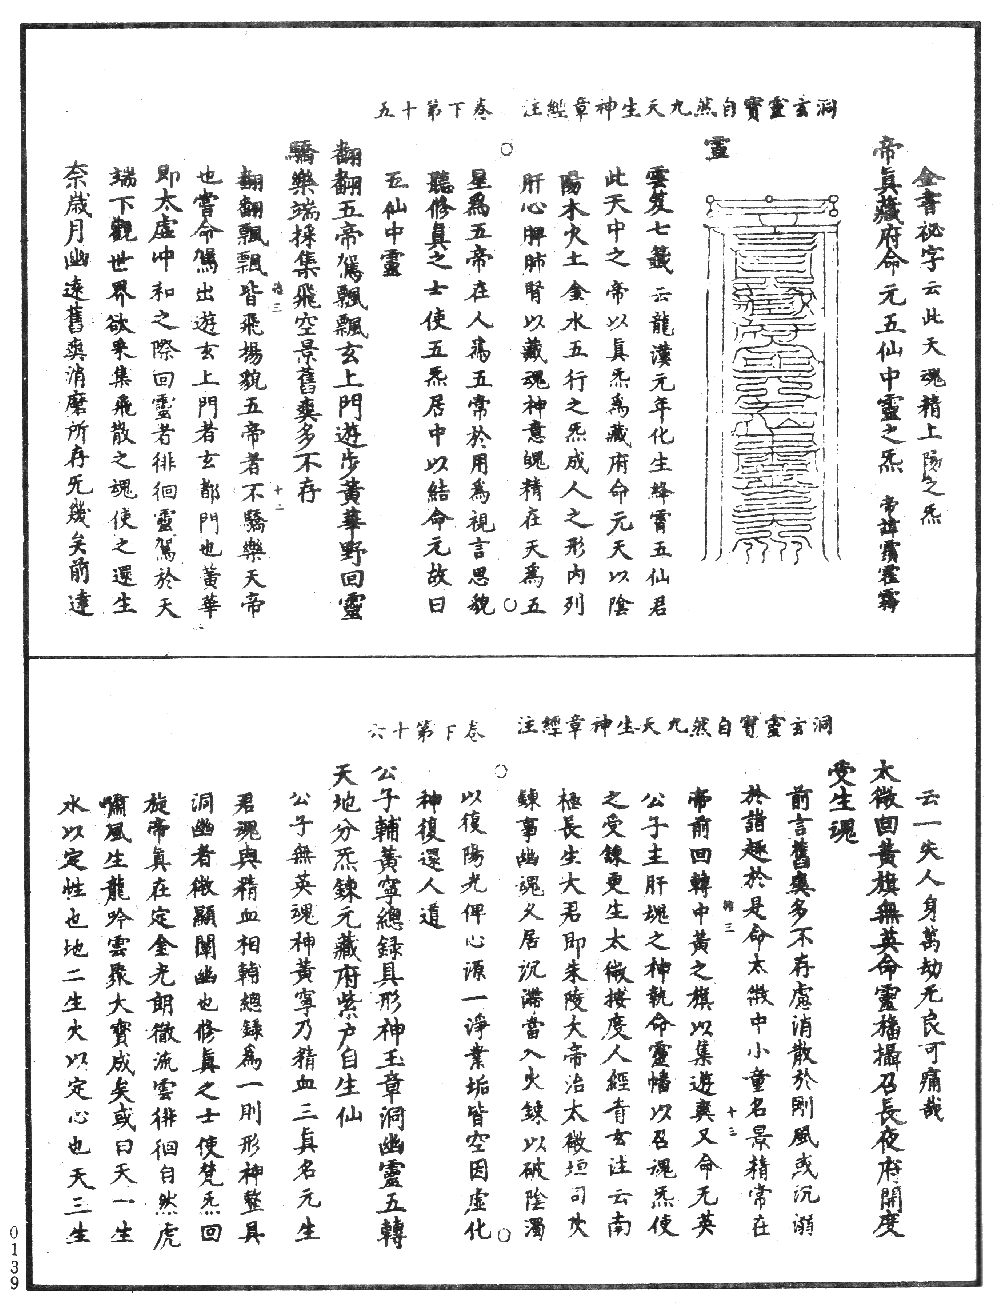 洞玄靈寶自然九天生神章經注 卷下第十五
金書祕字云此天魂精上陽之炁
帝真藏府命元五仙中靈之炁 帝諱霄霐霧
靈
雲笈七籤云龍漢元年化生絳霄五仙君
此天中之帝以真炁為藏府命元天以陰
陽木火土金水五行之炁成人之形內列
肝心脾肺腎以藏魂神意魄精在天為五
星為五帝在人為五常於用為視言思貌
聽修真之士使五炁居中以結命元故曰
五仙中靈
翻翻五帝駕飄飄玄上門遊步黃華野回靈
驕樂端採集飛空景舊爽多不存
翻翻飄飄皆飛揚貌五帝者不驕樂天帝
也嘗命駕出遊玄上門者玄都門也黃華
即太虛冲和之際回靈者徘徊靈駕於天
端下觀世界欲采集飛散之魂使之還生
奈歲月幽遠舊爽消磨所存无幾矣前達
洞玄靈寶自然九天生神章經注 卷下第十六
云一失人身萬劫无良可痛哉
太微回黃旗無英命靈旛攝召長夜府開度
受生魂
前言舊爽多不存慮消散於剛風或沉溺
於諸趣於是命太微中小童名景精常在
帝前回轉中黃之旗以集遊爽又命无英
公子主肝魂之神執命靈幡以召魂炁使
之受鍊更生太微按度人經青玄注云南
極長生大君即朱陵大帝治太微垣司火
鍊事幽魂久居沉滯當入火鍊以破陰濁
以復陽光俾心源一淨業垢皆空因虛化
神復還人道
公子輔黃寧總錄具形神玉章洞幽靈五轉
天地分炁鍊元藏府紫户自生仙
公子無英魂神黃寧乃精血三真名元生
君魂與精血相轉總錄為一則形神整具
洞幽者微顯闡幽也修真之士使梵炁回
旋帝真在定金光朗徹流雲徘徊自然虎
嘯風生龍吟雲聚大寶成矣或曰天一生
水以定性也地二生火以定心也天三生
0139